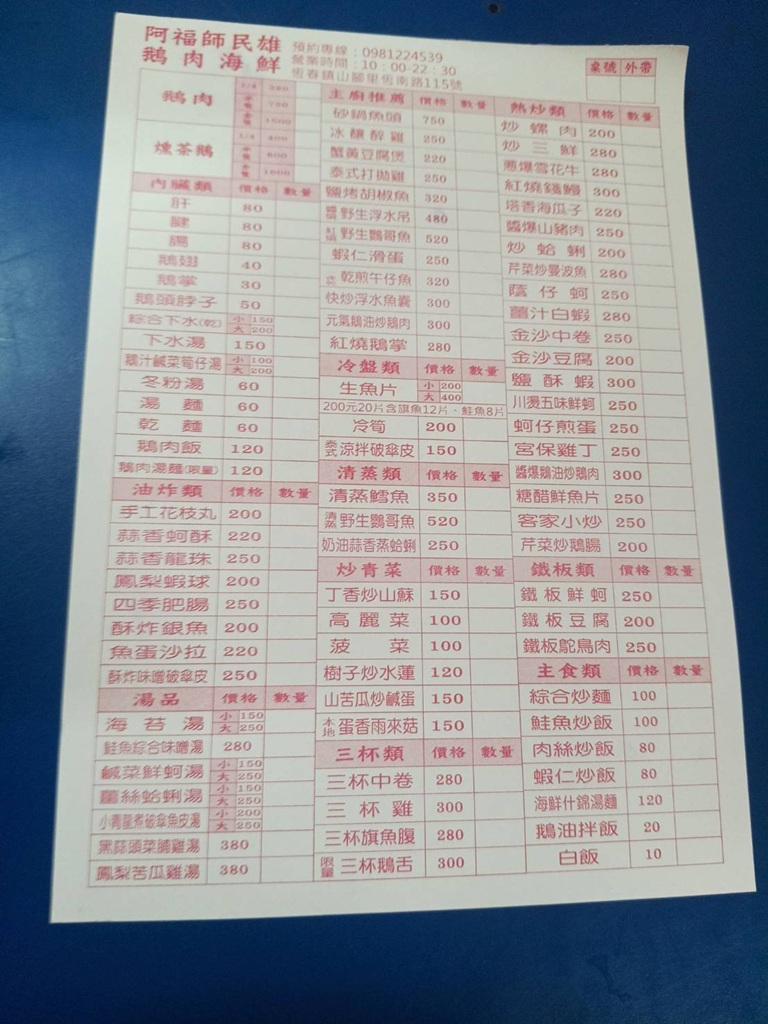 阿福師民雄
鵝肉海鮮
預約專線：0981224539
營業時間：10：00-22：30
恆春鎮山腳里恆南路115號
桌號 外帶
鵝肉 1/4 380
半隻 750
全隻 1500
燻茶鵝 1/4 400
半隻 800
全隻 1600
內臟類 價格 數量
肝 80
腱 80
腸 80
鵝翅 40
鵝掌 30
鵝頭脖子 50
綜合下水(乾) 小 150 大 200
下水湯 150
鵝汁鹹菜筍仔湯 小 100 大 200
冬粉湯 60
湯麵 60
乾麵 60
鵝肉飯 120
鵝肉湯麵(限量) 120
油炸類 價格 數量
手工花枝丸 200
蒜香蚵酥 220
蒜香龍珠 250
鳳梨蝦球 200
四季肥腸 250
酥炸銀魚 200
魚蛋沙拉 220
酥炸味噌破傘皮 250
湯品 價格 數量
海苔湯 小 150 大 250
鮭魚綜合味噌湯 280
鹹菜鮮蚵湯 小 150 大 250
薑絲蛤蜊湯 小 150 大 250
小青龍煮破傘魚皮湯 小 200 大 250
黑蒜頭菜脯雞湯 380
鳳梨苦瓜雞湯 380
主廚推薦 價格 數量
砂鍋魚頭 750
冰釀醉雞 250
蟹黃豆腐煲 220
泰式打拋雞 250
鹽烤胡椒魚 320
野生浮水吊 480
紅燒野生鸚哥魚 520
蝦仁滑蛋 250
乾煎午仔魚 320
快炒浮水魚囊 300
元氣鵝油炒鵝肉 300
紅燒鵝掌 280
冷盤類 價格 數量
生魚片 小 200 大 400
200元20片含旗魚12片、鮭魚8片
冷筍 200
泰式涼拌破傘皮 150
清蒸類 價格 數量
清蒸鱈魚 350
清蒸野生鸚哥魚 520
奶油蒜香蒸蛤蜊 250
炒青菜 價格 數量
丁香炒山蘇 150
高麗菜 100
菠菜 100
樹子炒水蓮 120
山苦瓜炒鹹蛋 150
本地蛋香雨來菇 150
三杯類 價格 數量
三杯中卷 280
三杯雞 300
三杯旗魚腹 280
限量三杯鵝舌 300
熱炒類 價格 數量
炒螺肉 200
炒三鮮 280
蔥爆雪花牛 280
紅燒錢鰻 300
塔香海瓜子 220
醬爆山豬肉 250
炒蛤蜊 200
芹菜炒曼波魚 280
蔭仔蚵 250
薑汁白蝦 280
金沙中卷 250
金沙豆腐 200
鹽酥蝦 300
川燙五味鮮蚵 250
蚵仔煎蛋 250
宮保雞丁 250
醬爆鵝油炒鵝肉 300
糖醋鮮魚片 250
客家小炒 250
芹菜炒鵝腸 200
鐵板類 價格 數量
鐵板鮮蚵 250
鐵板豆腐 200
鐵板鴕鳥肉 250
主食類 價格 數量
綜合炒麵 100
鮭魚炒飯 100
肉絲炒飯 80
蝦仁炒飯 80
海鮮什錦湯麵 120
鵝油拌飯 20
白飯 10